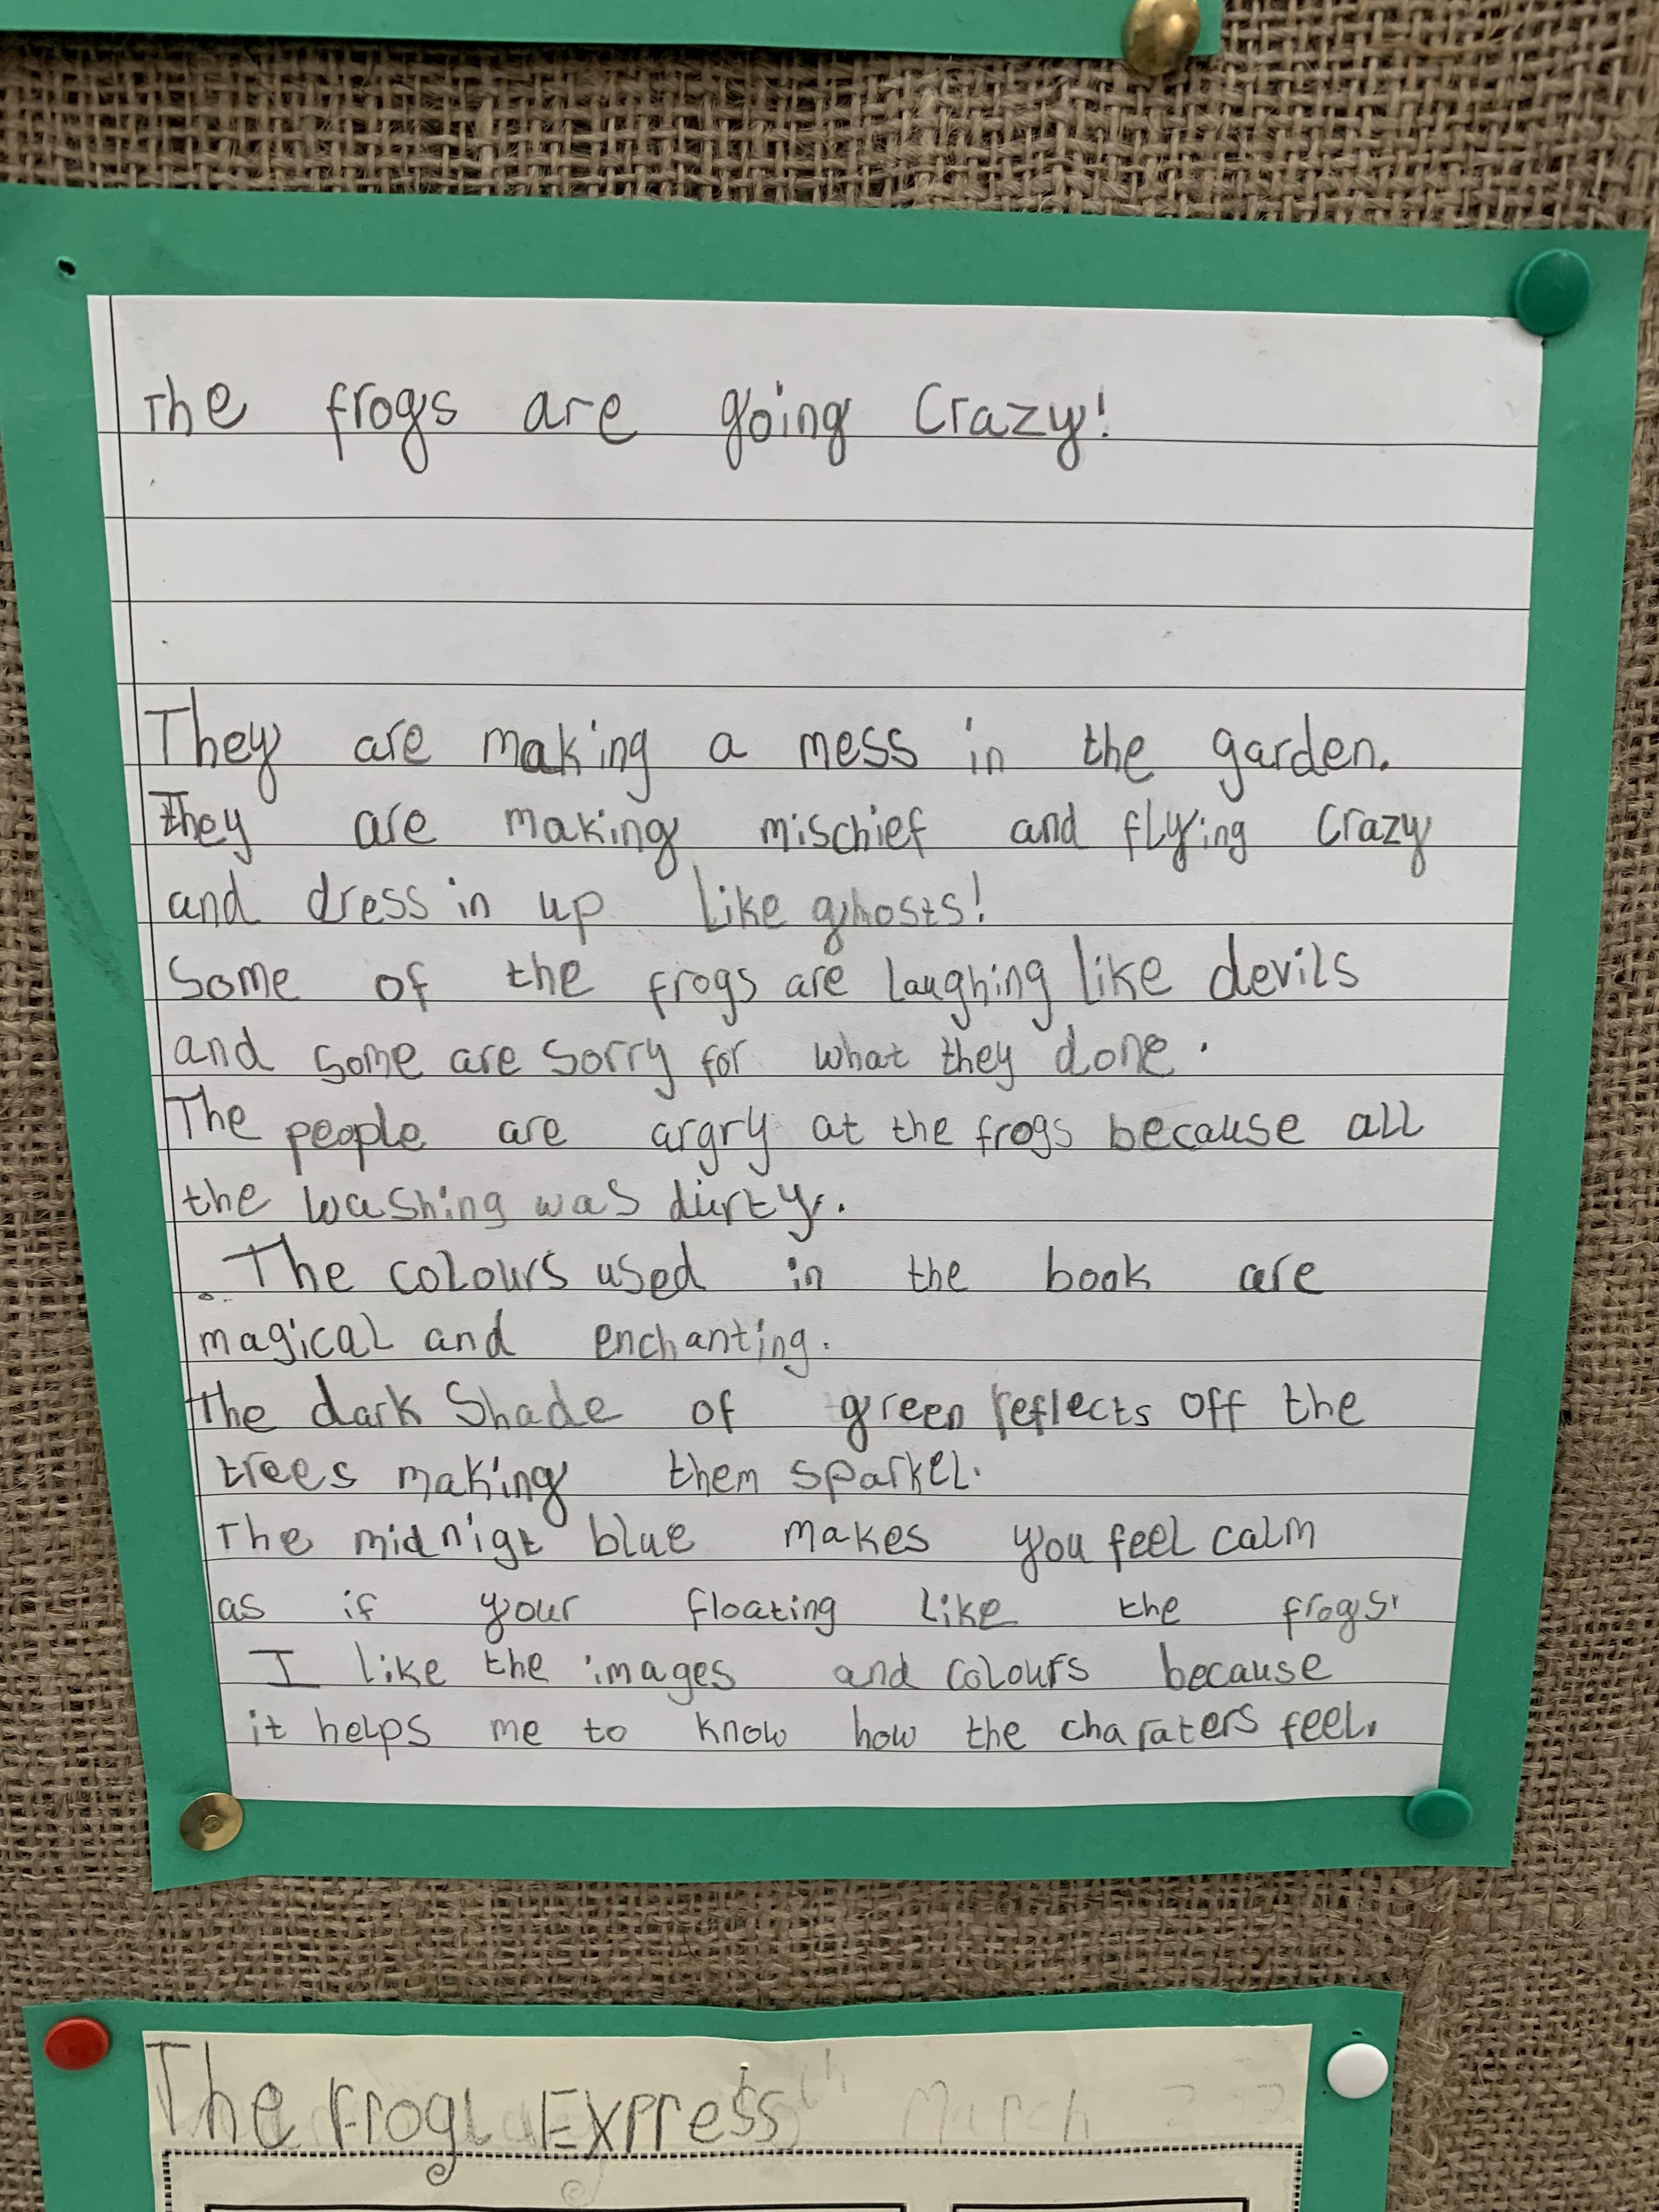 The frogs are going Crazy!
They are making a mess in the garden.
They are making mischief and flying Crazy
and dressin up like ghosts!
Some of the frogs are laughing like devils
and some are sorry for what they done.
The people are argry at the frogs because all
the washing was durty.
The colours used in the book are
magical and enchanting.
The dark Shade of green reflects off the
trees making them sparkel.
The midnigt blue makes you feel calm
as if your floating like the frogs.
I like the images and colours because
it helps me to know how the charaters feel.
The Frog Express
March